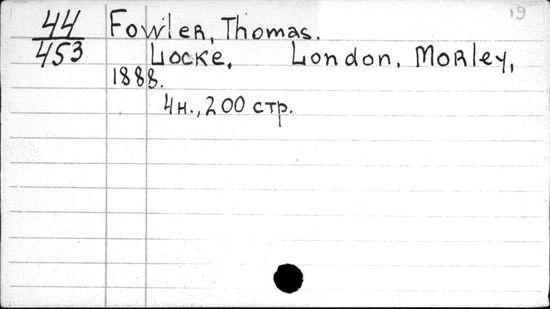 19
44 Fowler, Thomas.
453 Locke, London, Morley,
1888.
4н., 200 стр.